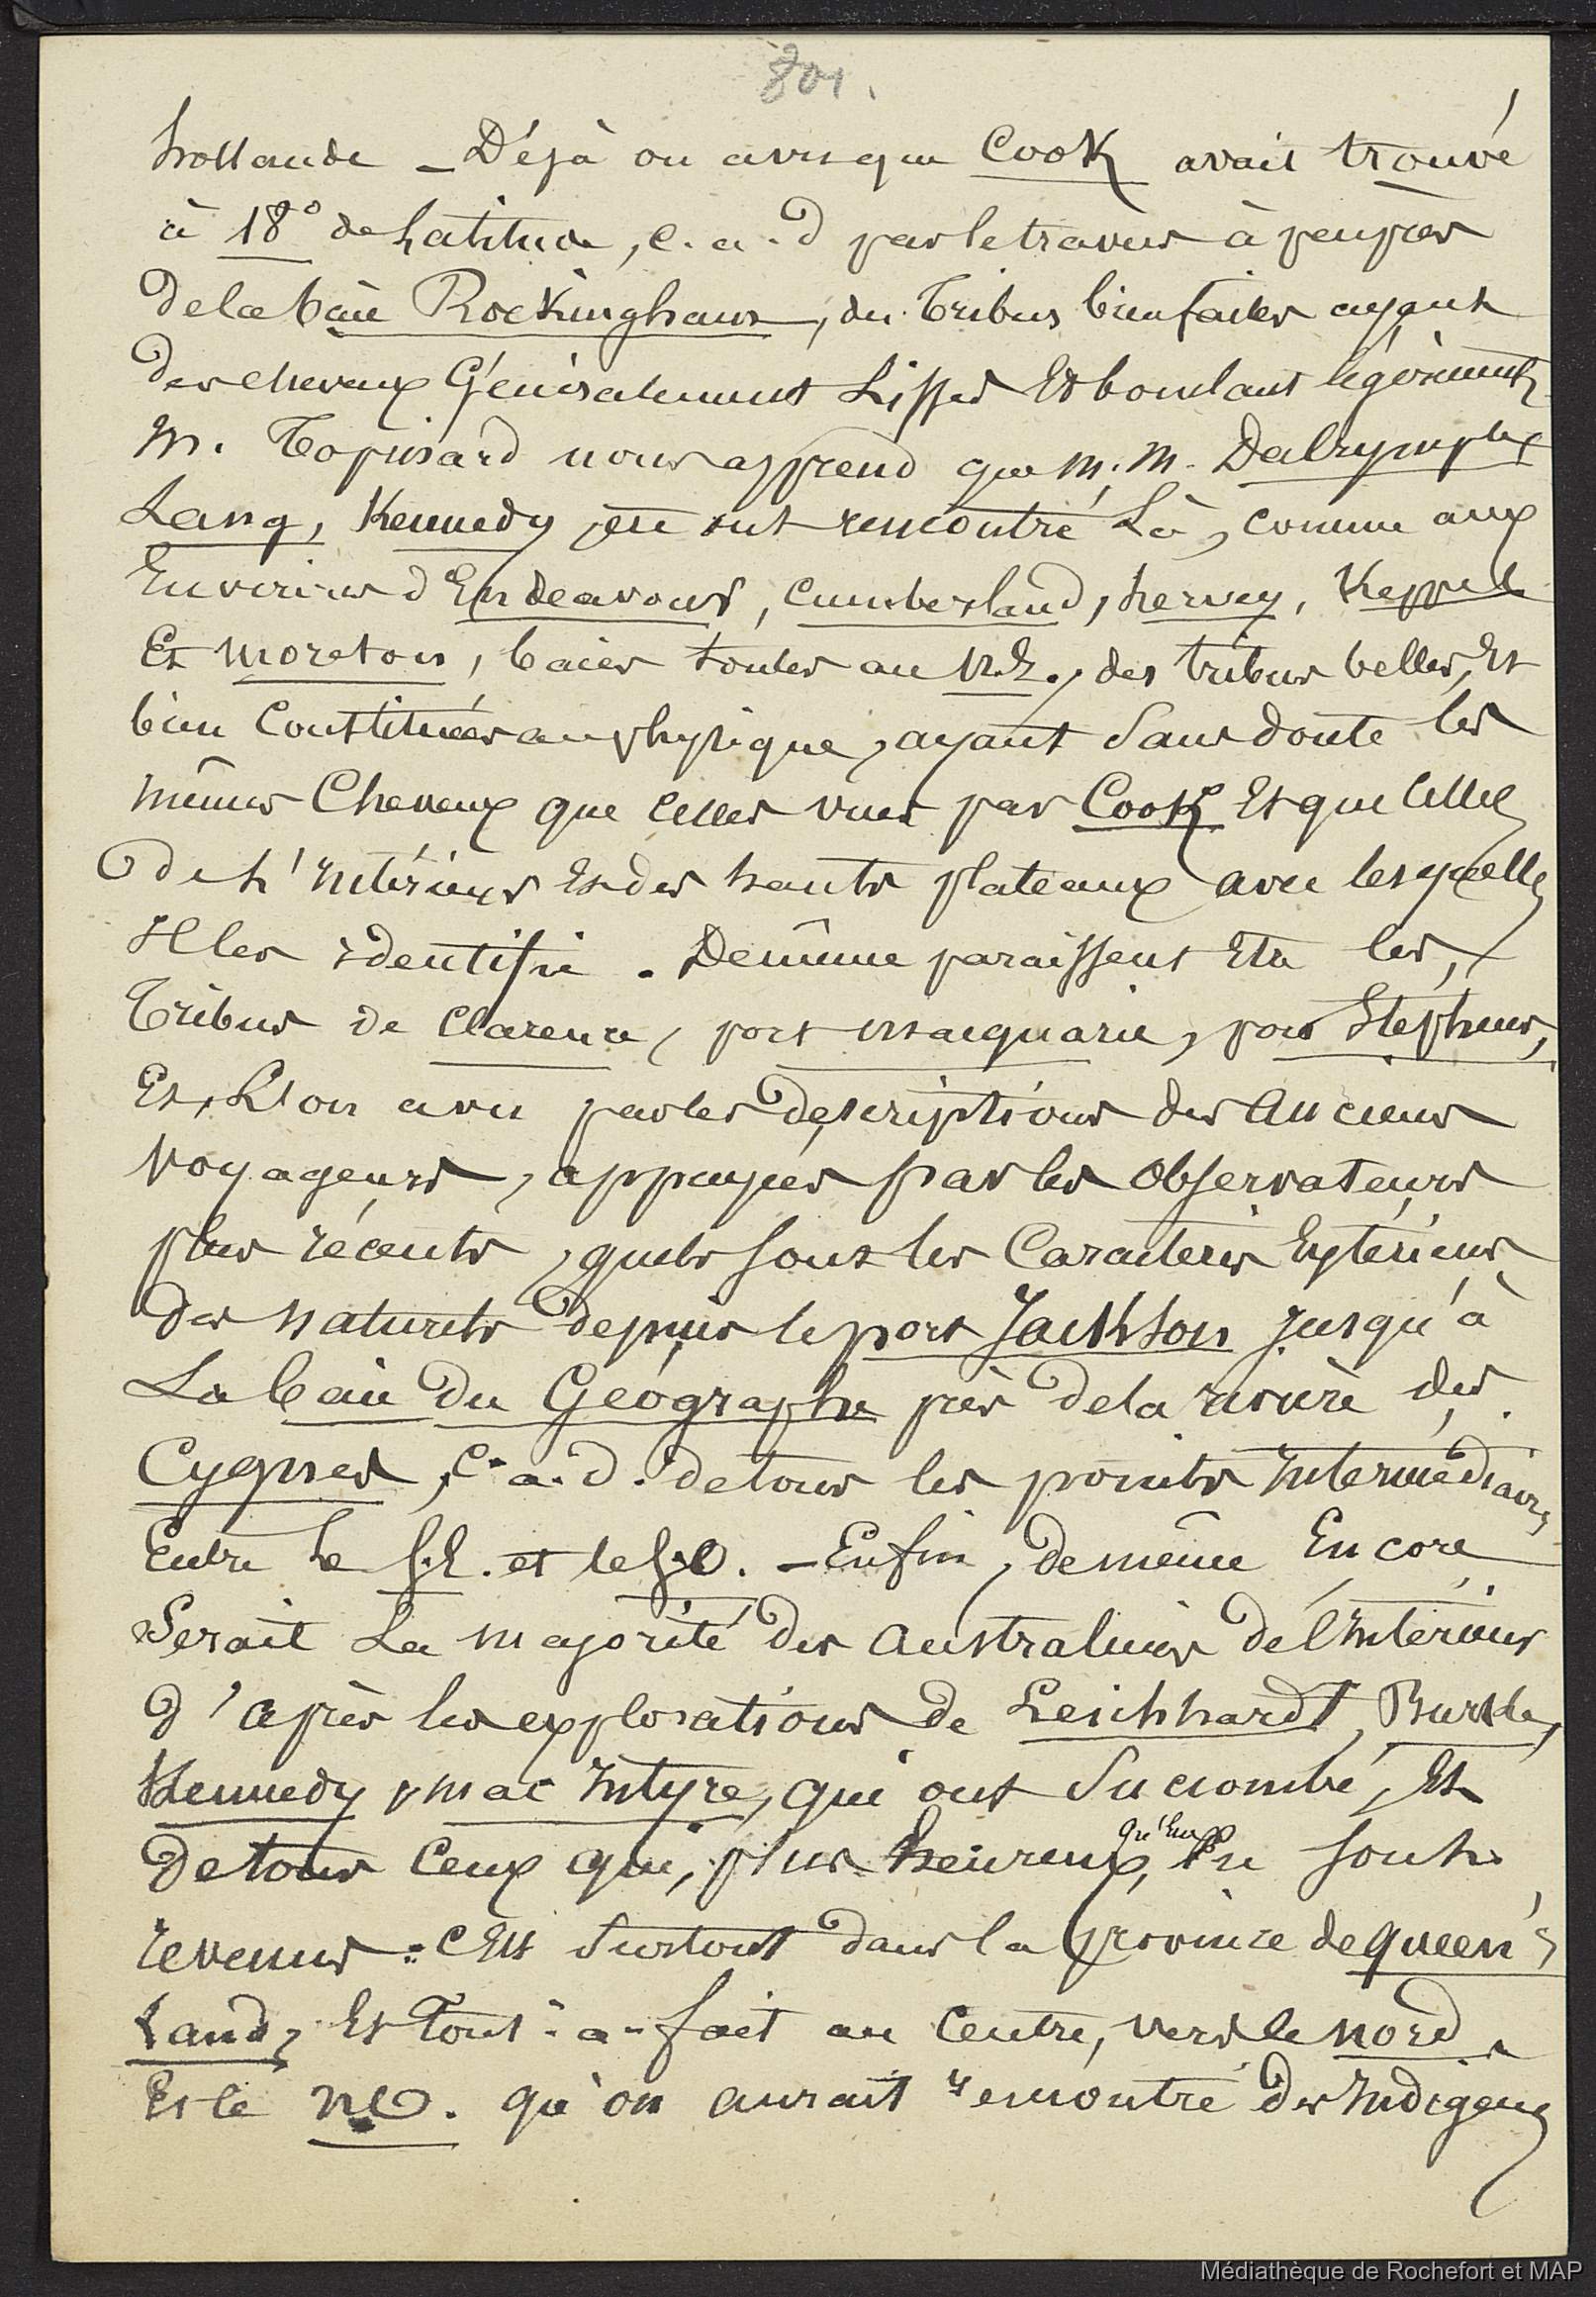 801.
hollande – Déjà on a vu que Cook avait trouvé
à 18° de Latitude, c.a.d par le travers à peu près
de la baie Rockingham, des Tribus bien faites ayant
des cheveux Généralement Lisses Et bouclant légèrement
M. Topinard nous apprend que M.M. Dalrymple
Lang, Kennedy en ont rencontré Là, comme aux
Environs d'Endeavour, Cumberland, hervey, Keppel
Et moreton, baies toutes au N.E., des tribus belles, Et
bien Constituées au physique, ayant Sans doute les
mêmes Cheveux que celles vues par Cook Et que celles
de L'Intérieur Et des hauts plateaux avec lesquelles
Il les identifie. De même paraissent Etre les,
Tribus de Clarence, port macquarie, port Stéphens,
Et, L'on a vu par les descriptions des anciens
voyageurs, appuyées par les observateurs
plus récents, quels sont les Caractères Extérieurs
des naturels depuis le port Jackson jusqu'à
La baie du Géographe près de la rivière des
Cygnes, c.a.d. de tous les points Intermédiaires
Entre le S.E. et le S.O. – Enfin, de même Encore
Serait La majorité des australiens de l'Intérieur
d'après les explorations de Leichhardt, Burke,
Kennedy, mac Intyre, qui ont Succombé, Et
de tous ceux qui, plus heureux qu'Eux, En sont
revenus : c'Est Surtout dans la province de queen's
Land, Et Tout-à-fait au centre, vers le nord
Et le N.O. qu'on aurait rencontré des Indigènes
Médiathèque de Rochefort et MAP